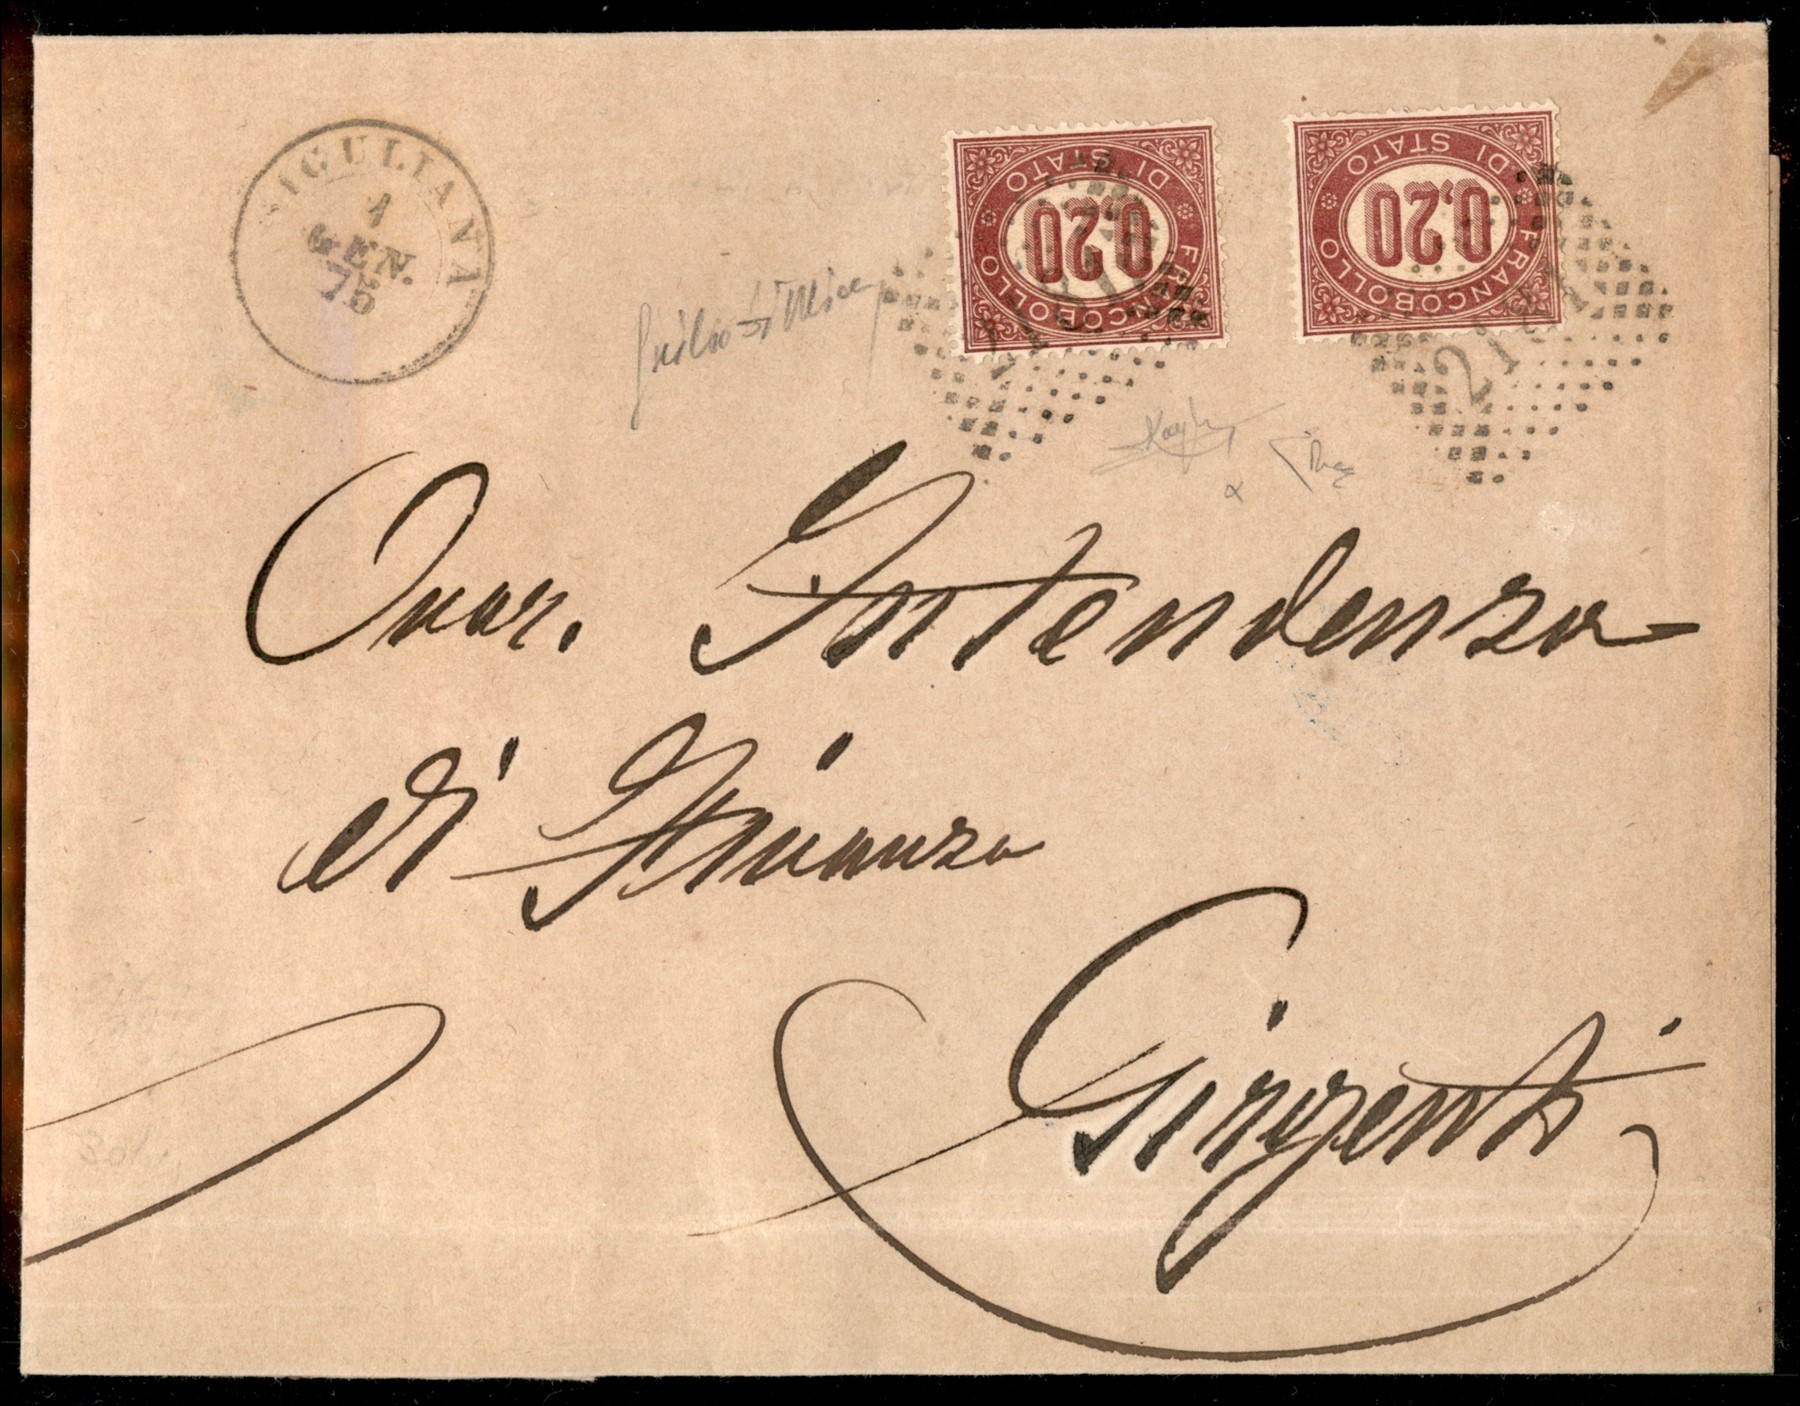 SICULIANA
1
GEN.
76
FRANCOBOLLO DI STATO
0,20
FRANCOBOLLO DI STATO
0,20
Onor. Intendenza
di Finanza
Girgenti